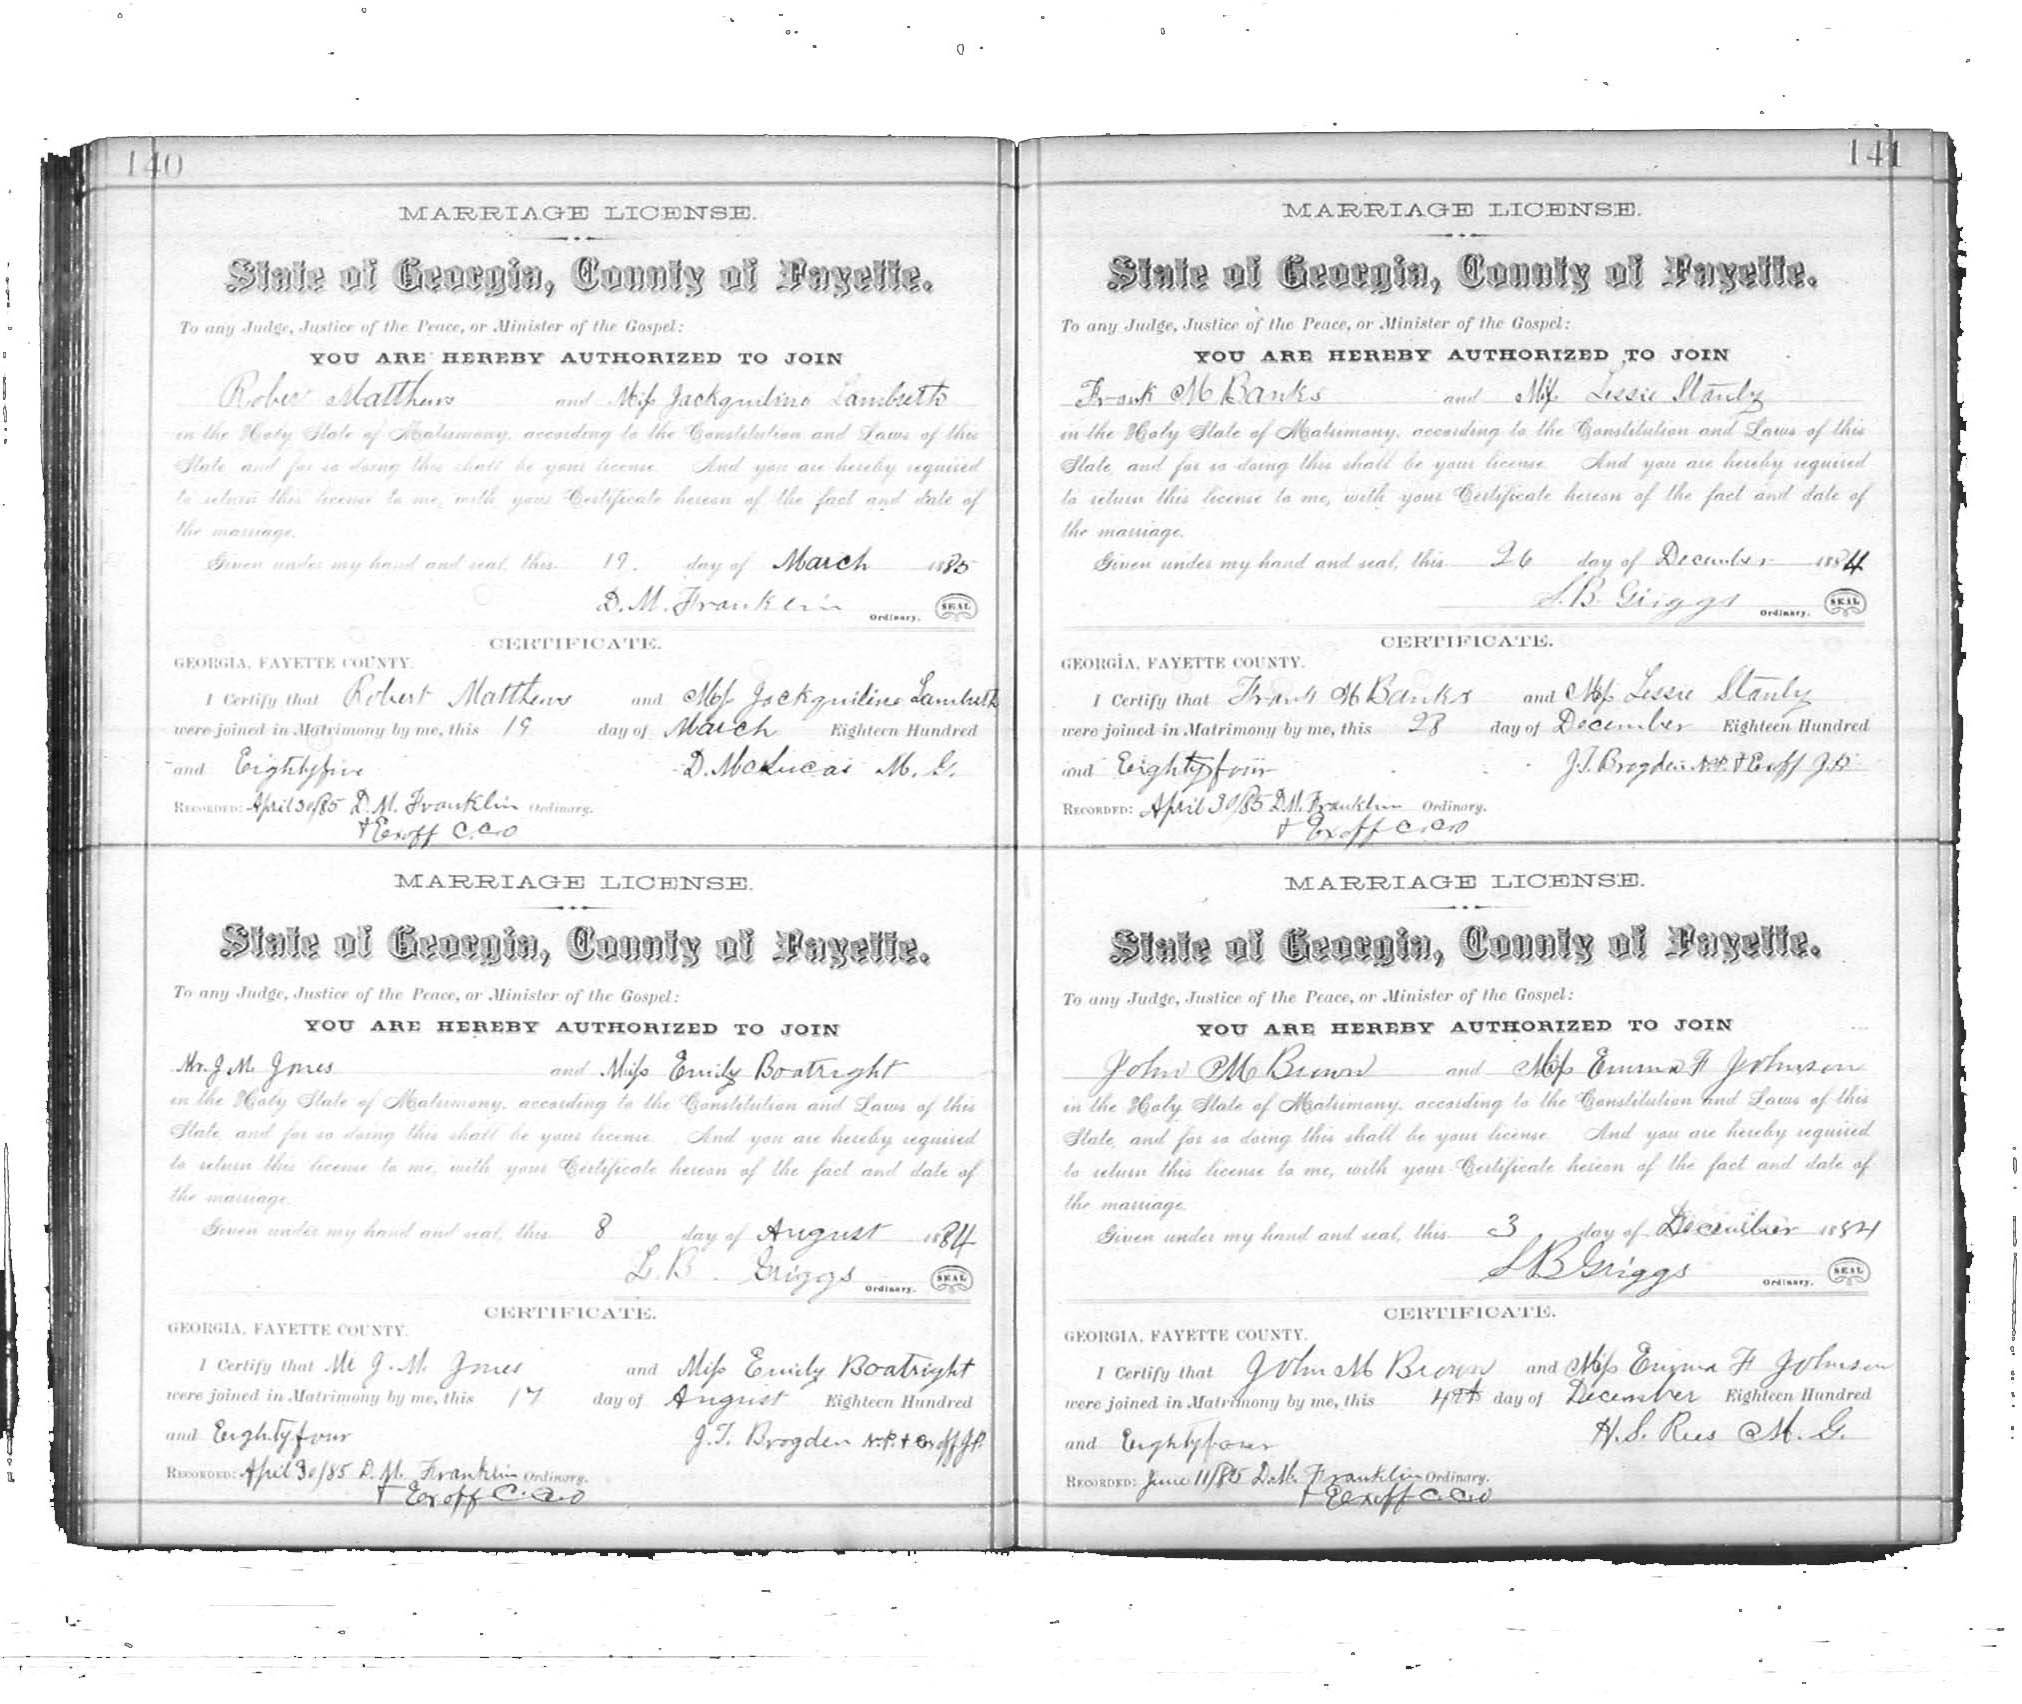 140
MARRIAGE LICENSE.
State of Georgia, County of Fayette.
To any Judge, Justice of the Peace, or Minister of the Gospel:
YOU ARE HEREBY AUTHORIZED TO JOIN
Rober Matthews and Miss Jackquiline Lambreth
in the Holy State of Matrimony, according to the Constitution and Laws of this
State, and for so doing this shall be your license. And you are hereby required
to return this license to me, with your Certificate hereon of the fact and date of
the marriage.
Given under my hand and seal, this 19. day of March 1885
D. M. Franklin Ordinary. SEAL
CERTIFICATE.
GEORGIA, FAYETTE COUNTY.
I Certify that Robert Matthews and Miss Jackquiline Lambreth
were joined in Matrimony by me, this 19 day of March Eighteen Hundred
and Eightyfive D. McLucas M. G.
RECORDED: April 30/85 D. M. Franklin Ordinary.
+ Exoff C.C.O
MARRIAGE LICENSE.
State of Georgia, County of Fayette.
To any Judge, Justice of the Peace, or Minister of the Gospel:
YOU ARE HEREBY AUTHORIZED TO JOIN
Mr. J M Jones and Miss Emily Boatright
in the Holy State of Matrimony, according to the Constitution and Laws of this
State, and for so doing this shall be your license. And you are hereby required
to return this license to me, with your Certificate hereon of the fact and date of
the marriage.
Given under my hand and seal, this 8 day of August 1884
L. B. Griggs Ordinary. SEAL
CERTIFICATE.
GEORGIA, FAYETTE COUNTY.
I Certify that Mr J. M. Jones and Miss Emily Boatright
were joined in Matrimony by me, this 17 day of August Eighteen Hundred
and Eightyfour J. T. Brogden N.P. + Exoff J.P.
RECORDED: April 30/85 D. M. Franklin Ordinary.
+ Exoff C.C.O
141
MARRIAGE LICENSE.
State of Georgia, County of Fayette.
To any Judge, Justice of the Peace, or Minister of the Gospel:
YOU ARE HEREBY AUTHORIZED TO JOIN
Frank M Banks and Miss Lessie Stanly
in the Holy State of Matrimony, according to the Constitution and Laws of this
State, and for so doing this shall be your license. And you are hereby required
to return this license to me, with your Certificate hereon of the fact and date of
the marriage.
Given under my hand and seal, this 26 day of December 1884
L. B. Griggs Ordinary. SEAL
CERTIFICATE.
GEORGIA, FAYETTE COUNTY.
I Certify that Frank M Banks and Miss Lessie Stanly
were joined in Matrimony by me, this 28 day of December Eighteen Hundred
and Eightyfour J. T. Brogden N.P. + Exoff J.P.
RECORDED: April 30/85 D. M. Franklin Ordinary.
+ Exoff C.C.O
MARRIAGE LICENSE.
State of Georgia, County of Fayette.
To any Judge, Justice of the Peace, or Minister of the Gospel:
YOU ARE HEREBY AUTHORIZED TO JOIN
John M Brown and Miss Emma F Johnson
in the Holy State of Matrimony, according to the Constitution and Laws of this
State, and for so doing this shall be your license. And you are hereby required
to return this license to me, with your Certificate hereon of the fact and date of
the marriage.
Given under my hand and seal, this 3 day of December 1884
L B Griggs Ordinary. SEAL
CERTIFICATE.
GEORGIA, FAYETTE COUNTY.
I Certify that John M Brown and Miss Emma F Johnson
were joined in Matrimony by me, this 4th day of December Eighteen Hundred
and Eightyfour H. S. Rees M. G.
RECORDED: June 11/85 D. M. Franklin Ordinary.
+ Exoff C.C.O